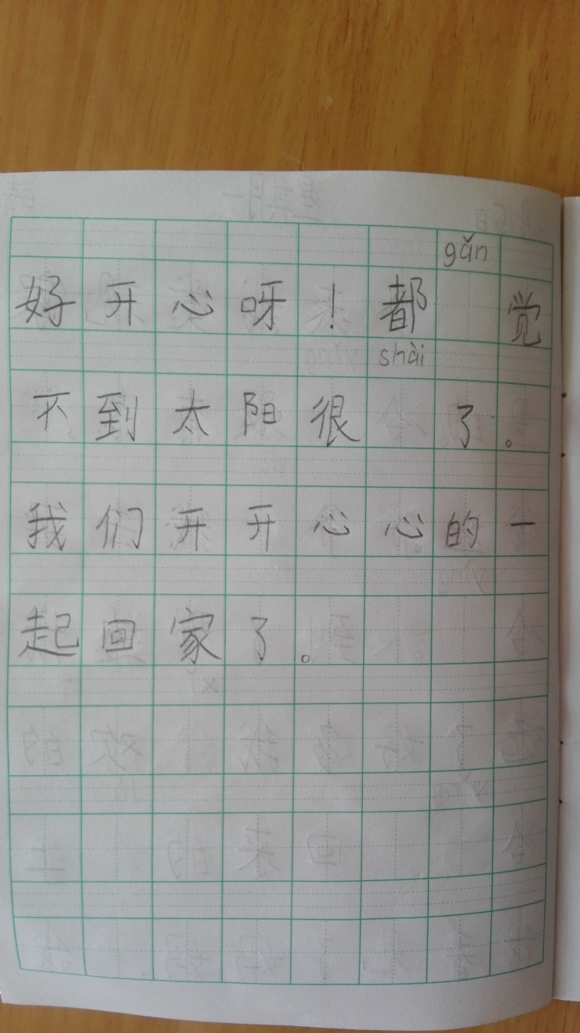 gǎn
好开心呀！都 觉
shài
不到太阳很 了。
我们开开心心的一
起回家了。